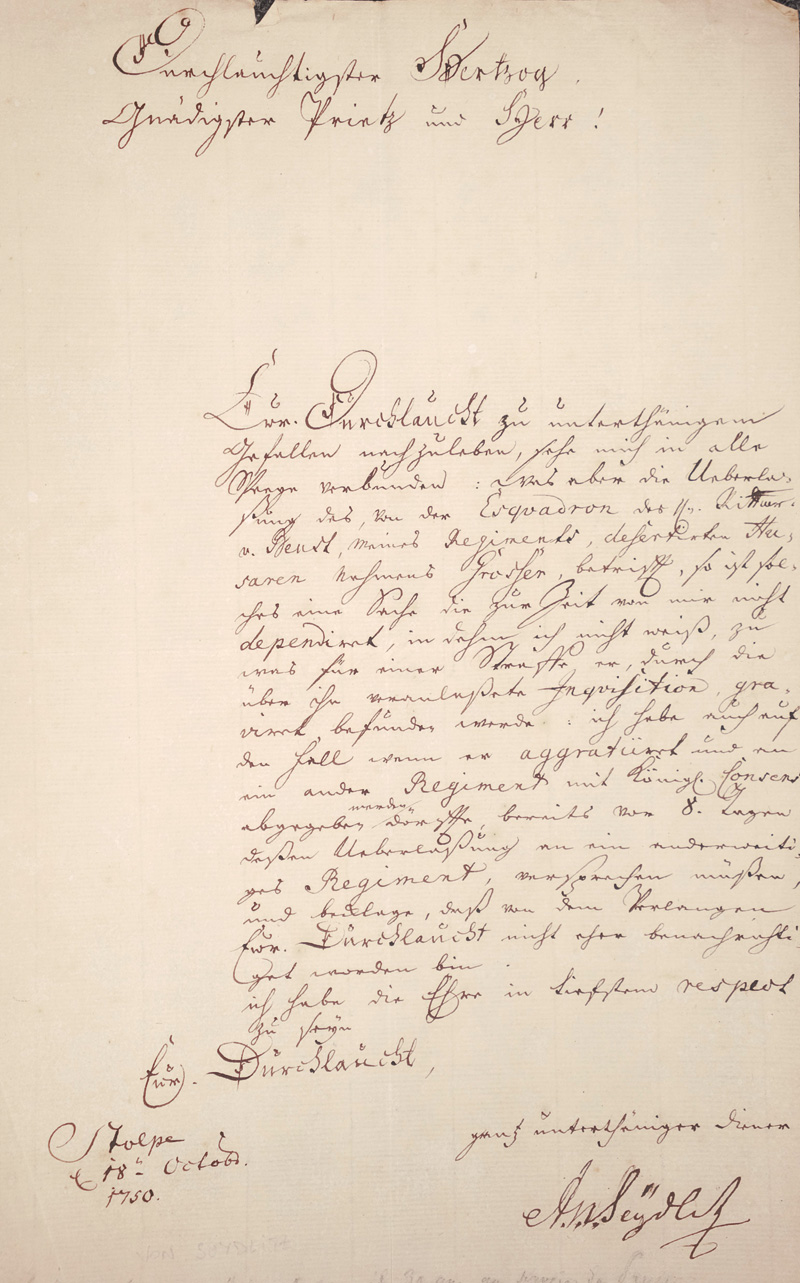 Durchlauchtigster Hertzog,
Gnädigster Printz und Herr!
Eur. Durchlaucht zu unterthänigem
Gefallen nachzuleben, sehe mich in alle
Weege verbunden: Was aber die Ueberla-
ßung des, von der Esqvadron des H. Rittm.
v. Beust, meines Regiments, desertirten Hu-
saren Nahmens Grosser, betrifft, so ist sol-
ches eine Sache die zur Zeit von mir nicht
dependiret, in dehm ich nicht weiß, zu
was für einer Straffe er, durch die
über ihn veranlaßete Inqvisition, gra-
viret befunden werde: ich habe auch auf
den Fall wenn er aggratiiret und an
ein ander Regiment mit Königl. Consens
abgegeben werden dörffte, bereits vor 8. Tagen
deßen Ueberlaßung an ein anderweiti-
ges Regiment, versprechen müßen,
und beklage, daß von dem Verlangen
Eur. Durchlaucht nicht eher benachrichti-
get worden bin.
ich habe die Ehre in tiefstem respect
zu seyn
Eur. Durchlaucht,
ganz unterthäniger Diener
Stolpe
d 18ten Octobr.
1750.
A.v.Seydlitz